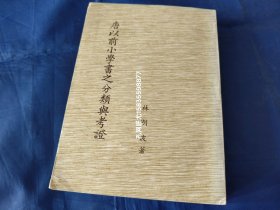 唐以前小學書之分類與考證
林明波著